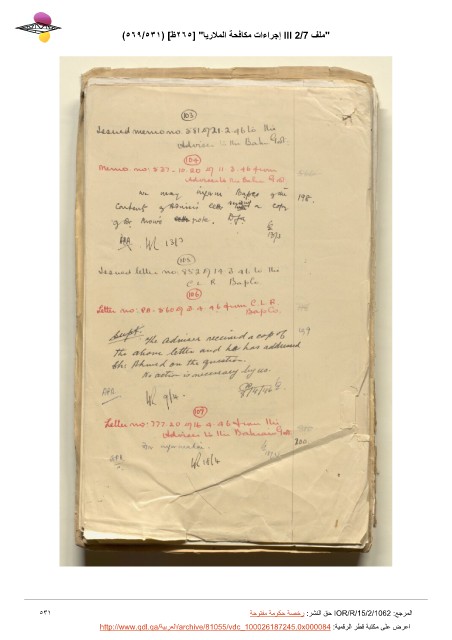 "ملف 2/7 III إجراءات مكافحة الملاريا" [٢٦٥ظ] (٥٦٩/٥٣١)
103
Issued memo no. 581 of 21.2.46 to the
Adviser to the Bahrain Govt.
104
Memo. no: 837-10.20 of 11.3.46 from
Adviser to the Bahrain Govt.
we may inform Bapco of the
198.
contents of a copy
of Dr note. Dfa
13/3
105
Issued letter no. 852 of 19.3.46 to the
C.L.R. Bapco.
106
Letter no: PA-860 of 3.4.46 from C.L.R.
Bapco.
199
Supt. The Adviser received a copy of
the above letter and has addressed
the on the question.
No action is necessary by us.
9/4
107
Letter no: 777.20 of 16.4.46 from the
Adviser to the Bahrain Govt
200
For information
18/4
المرجع: IOR/R/15/2/1062 حق النشر: رخصة حكومة مفتوحة
٥٣١
اعرض على مكتبة قطر الرقمية: http://www.qdl.qa/العربية/archive/81055/vdc_100026187245.0x000084